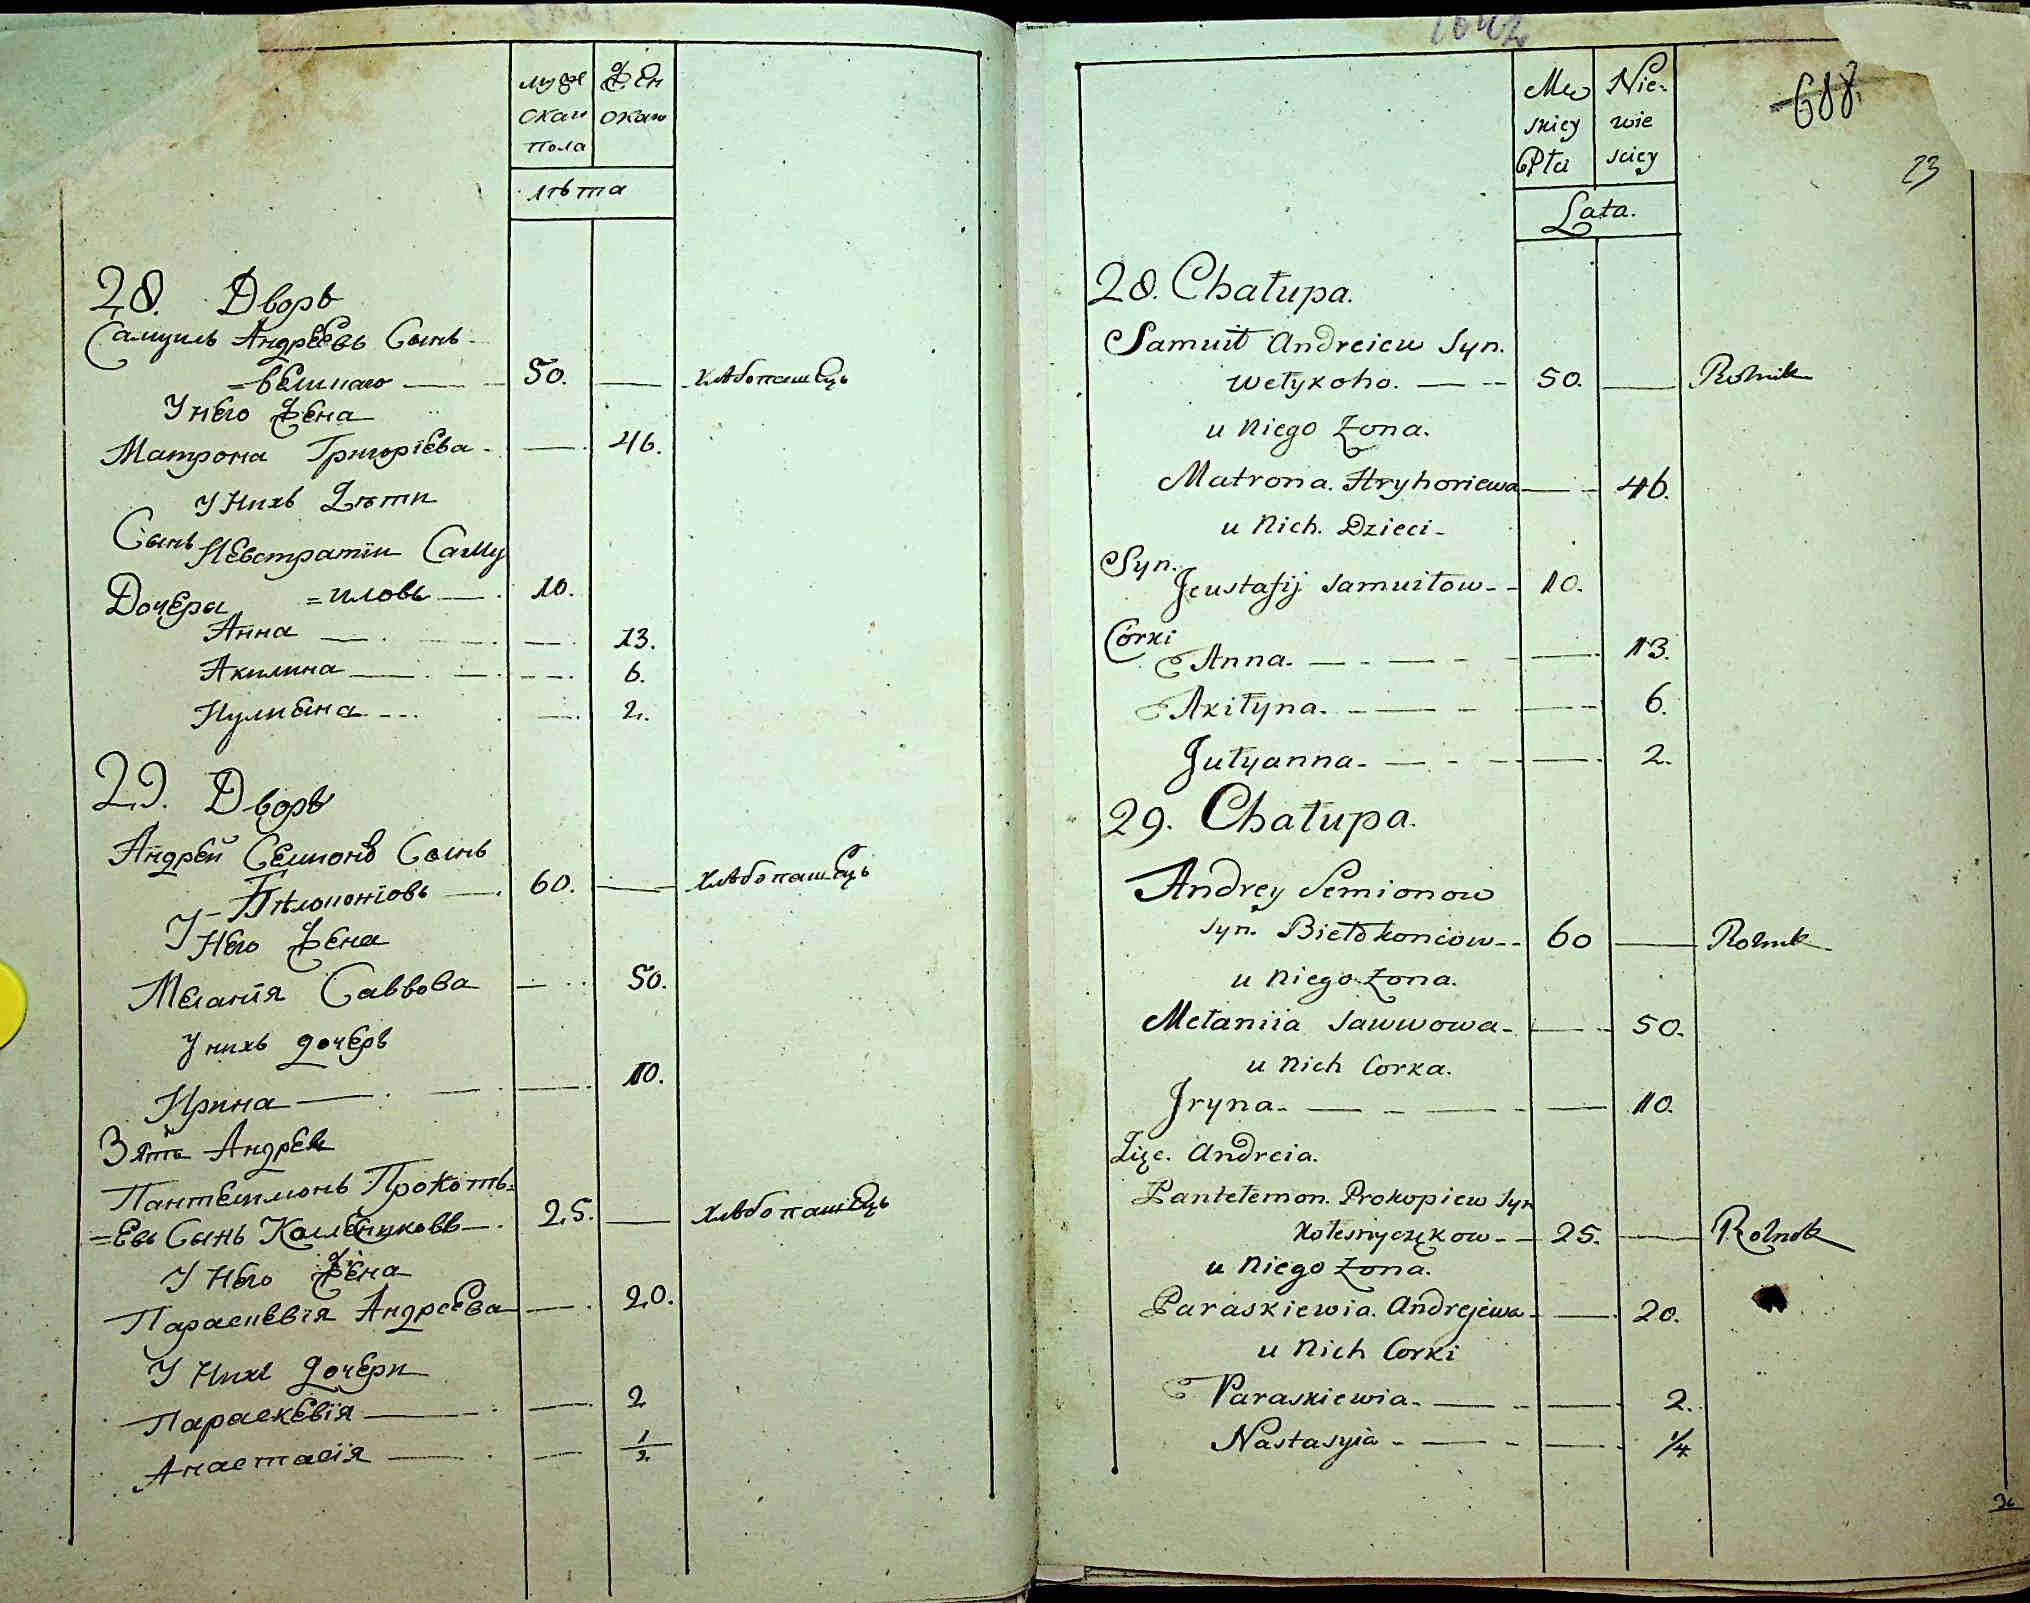 муже
скаи
пола
жен
скаи
лѣта
28. Дворъ
Самуиль Андреевъ Сынъ
=великаго — 50. — хлѣбопашецъ
У него жена
Матрона Григорїева — 46.
У нихъ дѣти
Сынъ Иевстратїи Саму
=иловъ — 10.
Дочера
Анна — 13.
Акилина — 6.
Иулиѣна — 2.
29. Дворъ
Андрей Семионъ Сынъ
Бѣлоконїовъ — 60. — хлѣбопашецъ
У Него жена
Меланїя Саввова — 50.
У нихъ дочерь
Ирина — 10.
Зять Андрея
Пантелимонъ Прокопь=
=евъ Сынъ — 25. — хлѣбопашецъ
У Него жена
Параскевїя Андреева — 20.
У Нихъ дочери
Параскевїя — 2
Анастасїя — 1/2
688.
23
Mę
skiey
Płci
Nie-
wie
sciey
Lata.
28. Chałupa.
Samuił Andreiew Syn.
Wełykoho. — 50. — Rolnik
u Niego Żona.
Matrona. Hryhoriewa — 46.
u Nich. Dzieci-
Syn.
Jeustafij Samuiłow-- 10.
Córki
Anna. — 13.
Akiłyna. — 6.
Jułyanna. — 2.
29. Chałupa.
Andrey Semionow
Syn. Biełokoniow-- 60 — Rolnik
u Niego Żona.
Mełaniia Sawwowa- — 50.
u Nich Corka.
Jryna- — 10.
Zięc. Andreia.
Pantełemon. Prokopiew Syn
Kołesnyczkow- — 25. — Rolnik
u Niego Żona.
Paraskiewia. Andrejewa- — 20.
u Nich Corki
Paraskiewia. — 2.
Nastasyia - — 1/4